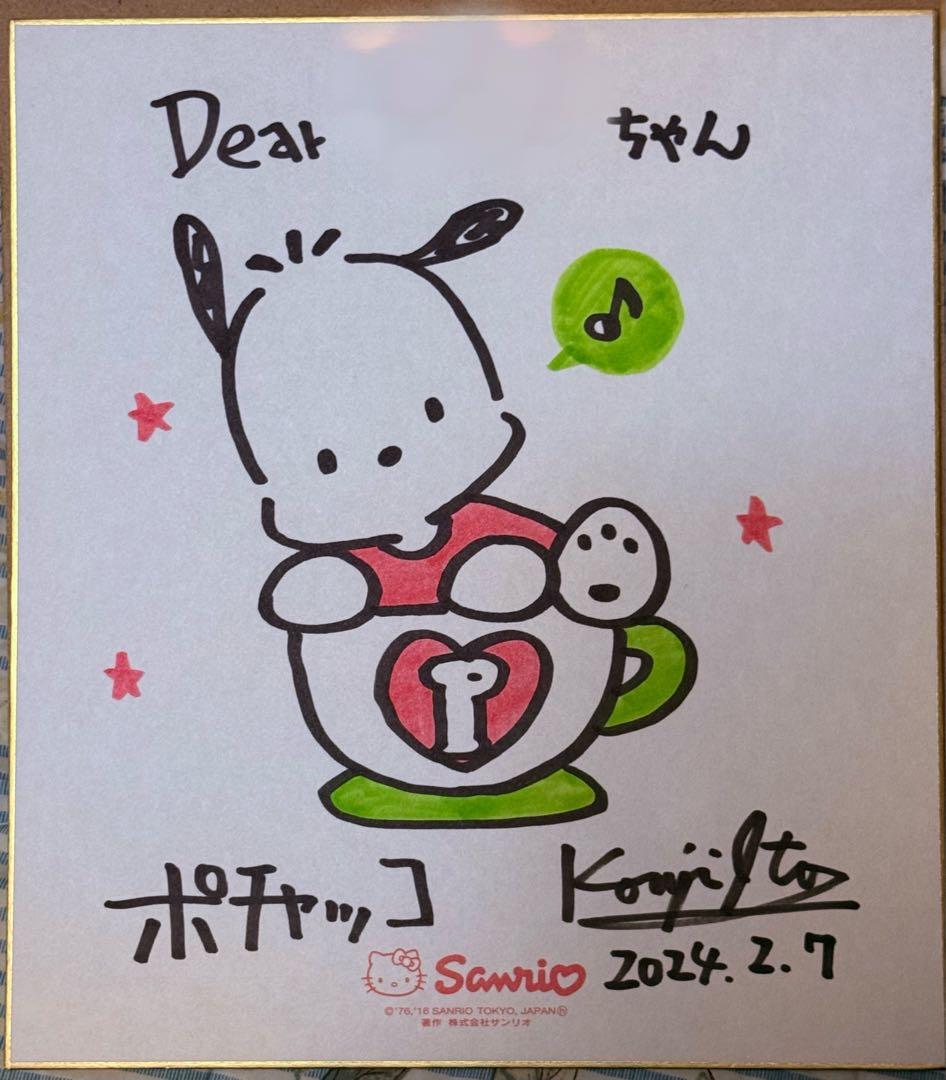 Dear ちゃん
ポチャッコ
Kouji Ito
2024.2.7
Sanrio
©'76,'16 SANRIO TOKYO, JAPAN Ⓗ
著作 株式会社サンリオ